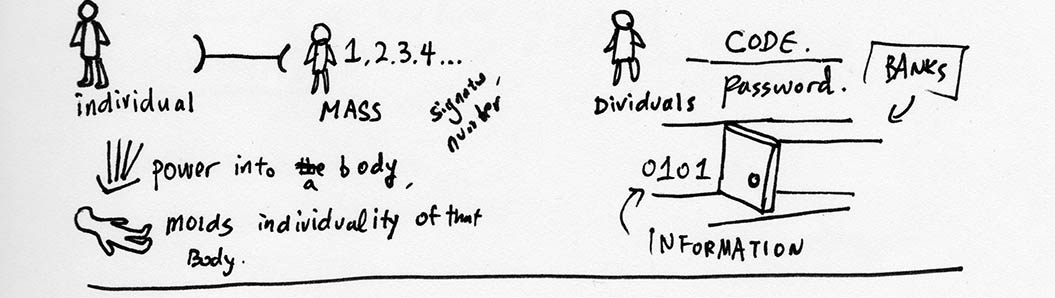 individual
MASS
1,2.3.4...
signatu,
number,
power into the a body,
molds individuality of that
Body.
Dividuals
CODE.
Password.
BANKS
0101
INFORMATION